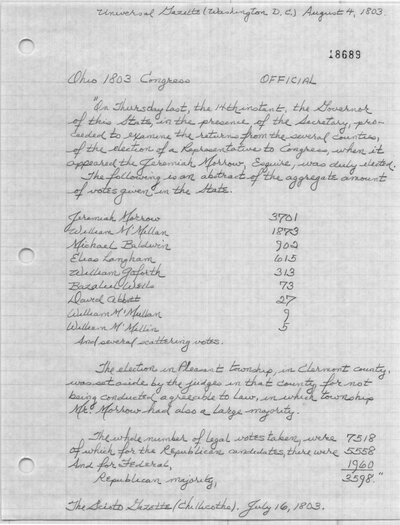 Universal Gazette (Washington D.C.) August 4, 1803.
18689
Ohio 1803 Congress OFFICIAL
"On Thursday last, the 14th instant, the Governor
of this State, in the presence of the Secretary, pro-
ceeded to examine the returns from the several counties,
of the election of a Representative to Congress, when it
appeared the Jeremiah Morrow, Esquire, was duly elected.
The following is an abstract of the aggregate amount
of votes given in the State.
Jeremiah Morrow 3701
William M'Millan 1873
Michael Baldwin 902
Elias Langham 615
William Goforth 313
Bazaliel Wells 73
David Abbott 27
William M'Mullan 9
William M'Millin 5
And several scattering votes.
The election in Pleasant township, in Clermont county,
was set aside by the judges in that county, for not
being conducted agreeable to law, in which township
Mr. Morrow had also a large majority.
The whole number of legal votes taken, were 7518
of which for the Republican candidates, there were 5558
And for Federal, 1960
Republican majority, 3598."
The Scioto Gazette (Chillicothe). July 16, 1803.